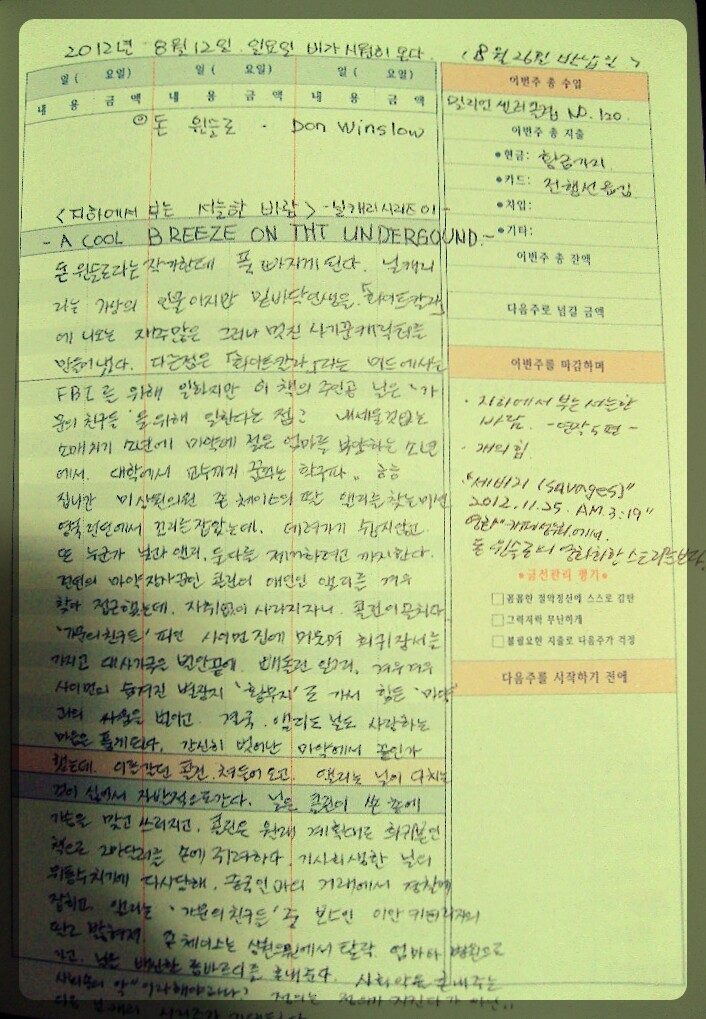 2012년 8월 12일. 일요일 비가 시원히 온다. (8월 26일 반납일)
일 ( 요일) 일 ( 요일) 일 ( 요일)
내 용 금 액 내 용 금 액 내 용 금 액
돈 윈슬로 - Don Winslow
<지하에서 부는 서늘한 바람> - 닐캐리시리즈 01 -
- A COOL BREEZE ON THT UNDERGOUND. -
돈 윈슬로라는 작가한테 푹 빠지게 된다. 닐캐리
라는 가상의 인물이지만 밑바닥인생을 「화이트칼라」
에 나오는 재주많은 그러나 멋진 사기꾼캐릭터를
만들어냈다. 다른점은 「화이트칼라」라는 미드에서는
FBI를 위해 일하지만 이 책의 주인공 닐은 "가
문의 친구들"을 위해 일한다는 점과 내세울것없는
소매치기 소년에 마약에 쩔은 엄마를 부양하는 소년
에서. 대학에서 교수까지 꿈꾸는 학구파..
집나간 미상원의원 존 체이스의 딸 앨리를 찾는 미션
영국런던에서 꼬리는 잡았는데. 데려가기 쉽지않고.
또 누군가 닐과 앨리. 둘다를 제거하려고 까지한다.
런던의 마약장사꾼인 콜린이 애인인 앨리를 겨우
찾아 접근했는데. 자취없이 사라지자
'가문의 친구들' 파인 사이먼 집에 머물며 희귀장서를
가지고 대사기극을 벌인끝에. 빼돌린 앨리. 겨우겨우
사이먼의 숨겨진 별장지 '황무지'로 가서 힘든 '마약'
과의 싸움을 벌이고. 결국. 앨리도 닐도 사랑하는
마음을 품게된다. 간신히 벗어난 마약에서 끝인가
했는데. 콜린. 쳐들어오고. 앨리는 닐이 다치는
것이 싫어서 자발적으로 간다. 닐은 콜린이 쏜 총에
가슴을 맞고 쓰러지고. 콜린은 원래 계획대로 희귀본인
책으로 2만달러를 손에 쥐려하다. 기사회생한 닐의
뒤통수치기에 다시당해. 중국인과의 거래에서 경찰에
잡히고. 앨리는 '가문의 친구들' 중 이안 키터리지의
밝혀져. 존 체이스는 상원의원에서 탈락. 엄마와 병원으로
가고. 닐은 배신한 롬바르디를 혼내준다. 사회악을 혼내주는
이번주 총 수입
밀리언 셀러 클럽 NO. 120.
이번주 총 지출
• 현금: 황금가지
• 카드: 전행선 옮김
• 차입:
• 기타:
이번주 총 잔액
다음주로 넘길 금액
이번주를 마감하며
· 지하에서 부는 서늘한
바람. - 연작 5편 -
· 개의 힘.
"세비지 (savages)"
2012. 11. 25. AM. 3:19"
돈 윈슬로의 영화화한 스토리를보다.
*금전관리 평가*
□ 꼼꼼한 절약정신에 스스로 감탄
□ 그럭저럭 무난하게
□ 불필요한 지출로 다음주가 걱정
다음주를 시작하기 전에